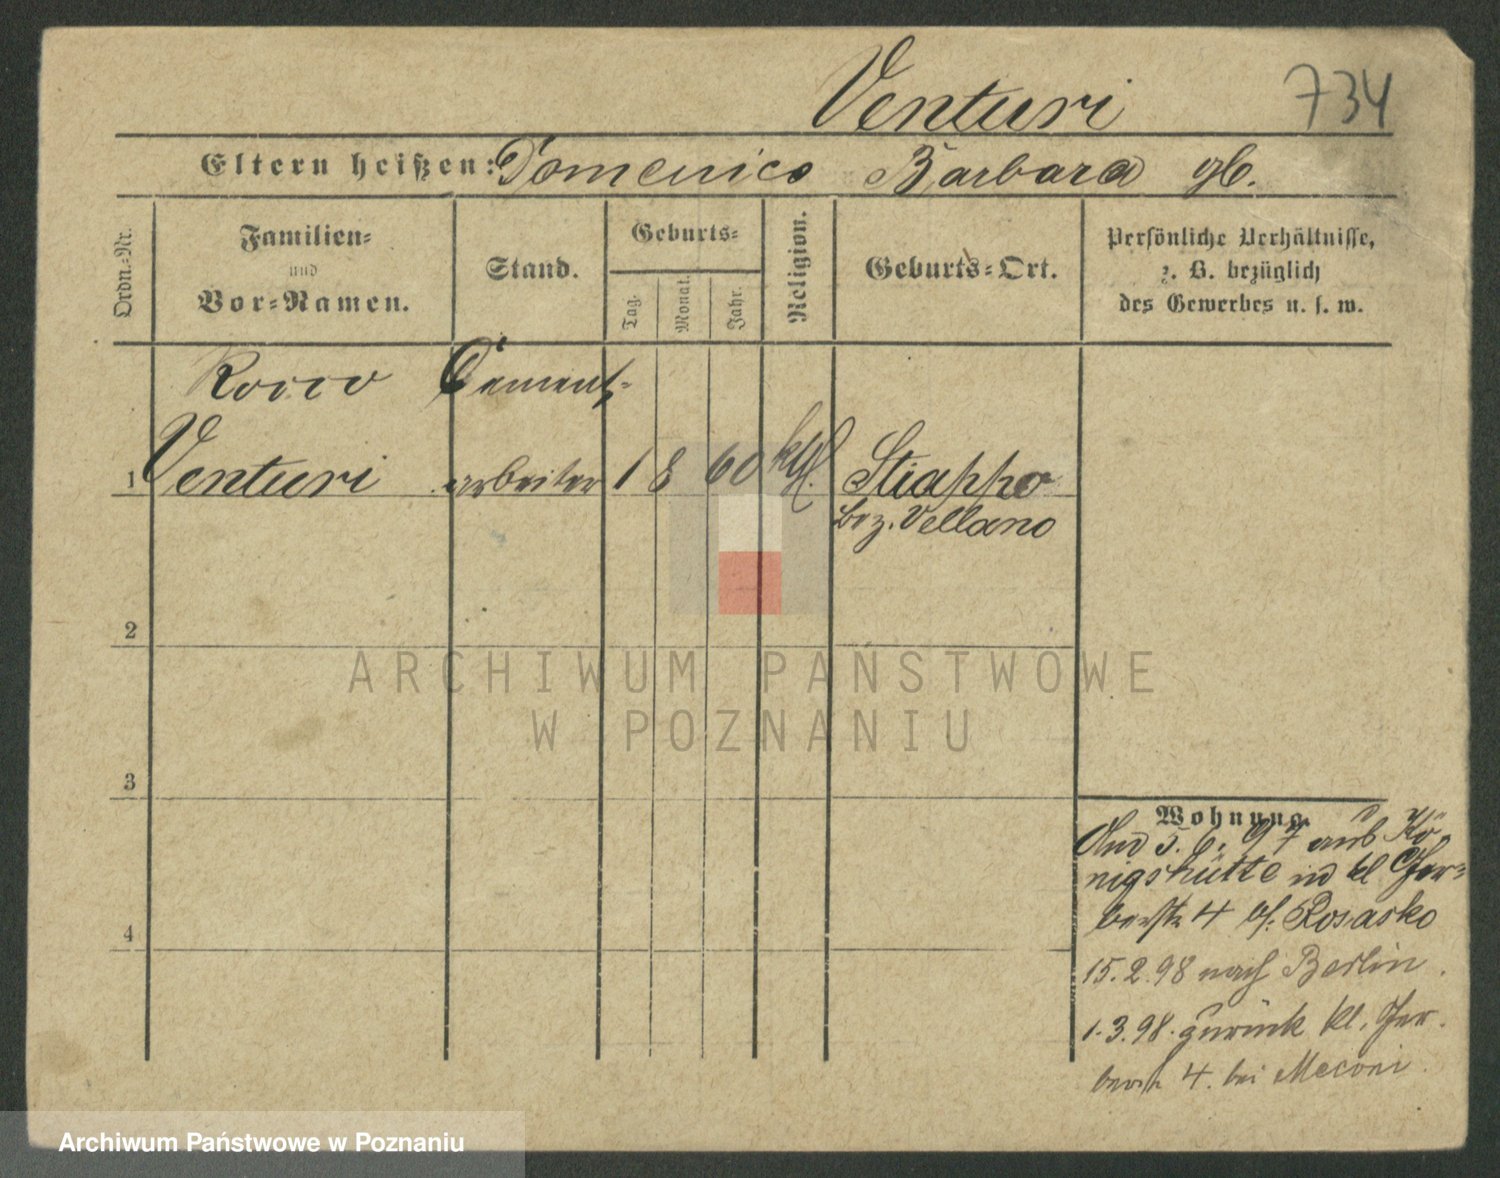 Venturi 734
Eltern heißen: Domenico Barbara gb.
Ordn.-Nr.
Familien-
und
Vor-Namen.
Stand.
Geburts-
Tag.
Monat.
Jahr.
Religion.
Geburts-Ort.
Persönliche Verhältnisse,
z. B. bezüglich
des Gewerbes u. s. w.
Rocco Cement-
1 Venturi arbeiter 1 8 60 kth. Stiappo
bez. Vellano
2
ARCHIWUM PAŃSTWOWE
W POZNANIU
3
Wohnung.
5. 6. 97 aus Kö-
nigshütte in kl Ger-
berstr 4 bei Rosasko
4
15. 2. 98 nach Berlin.
1. 3. 98. zurück kl. Ger-
berstr 4. bei Meconi.
Archiwum Państwowe w Poznaniu